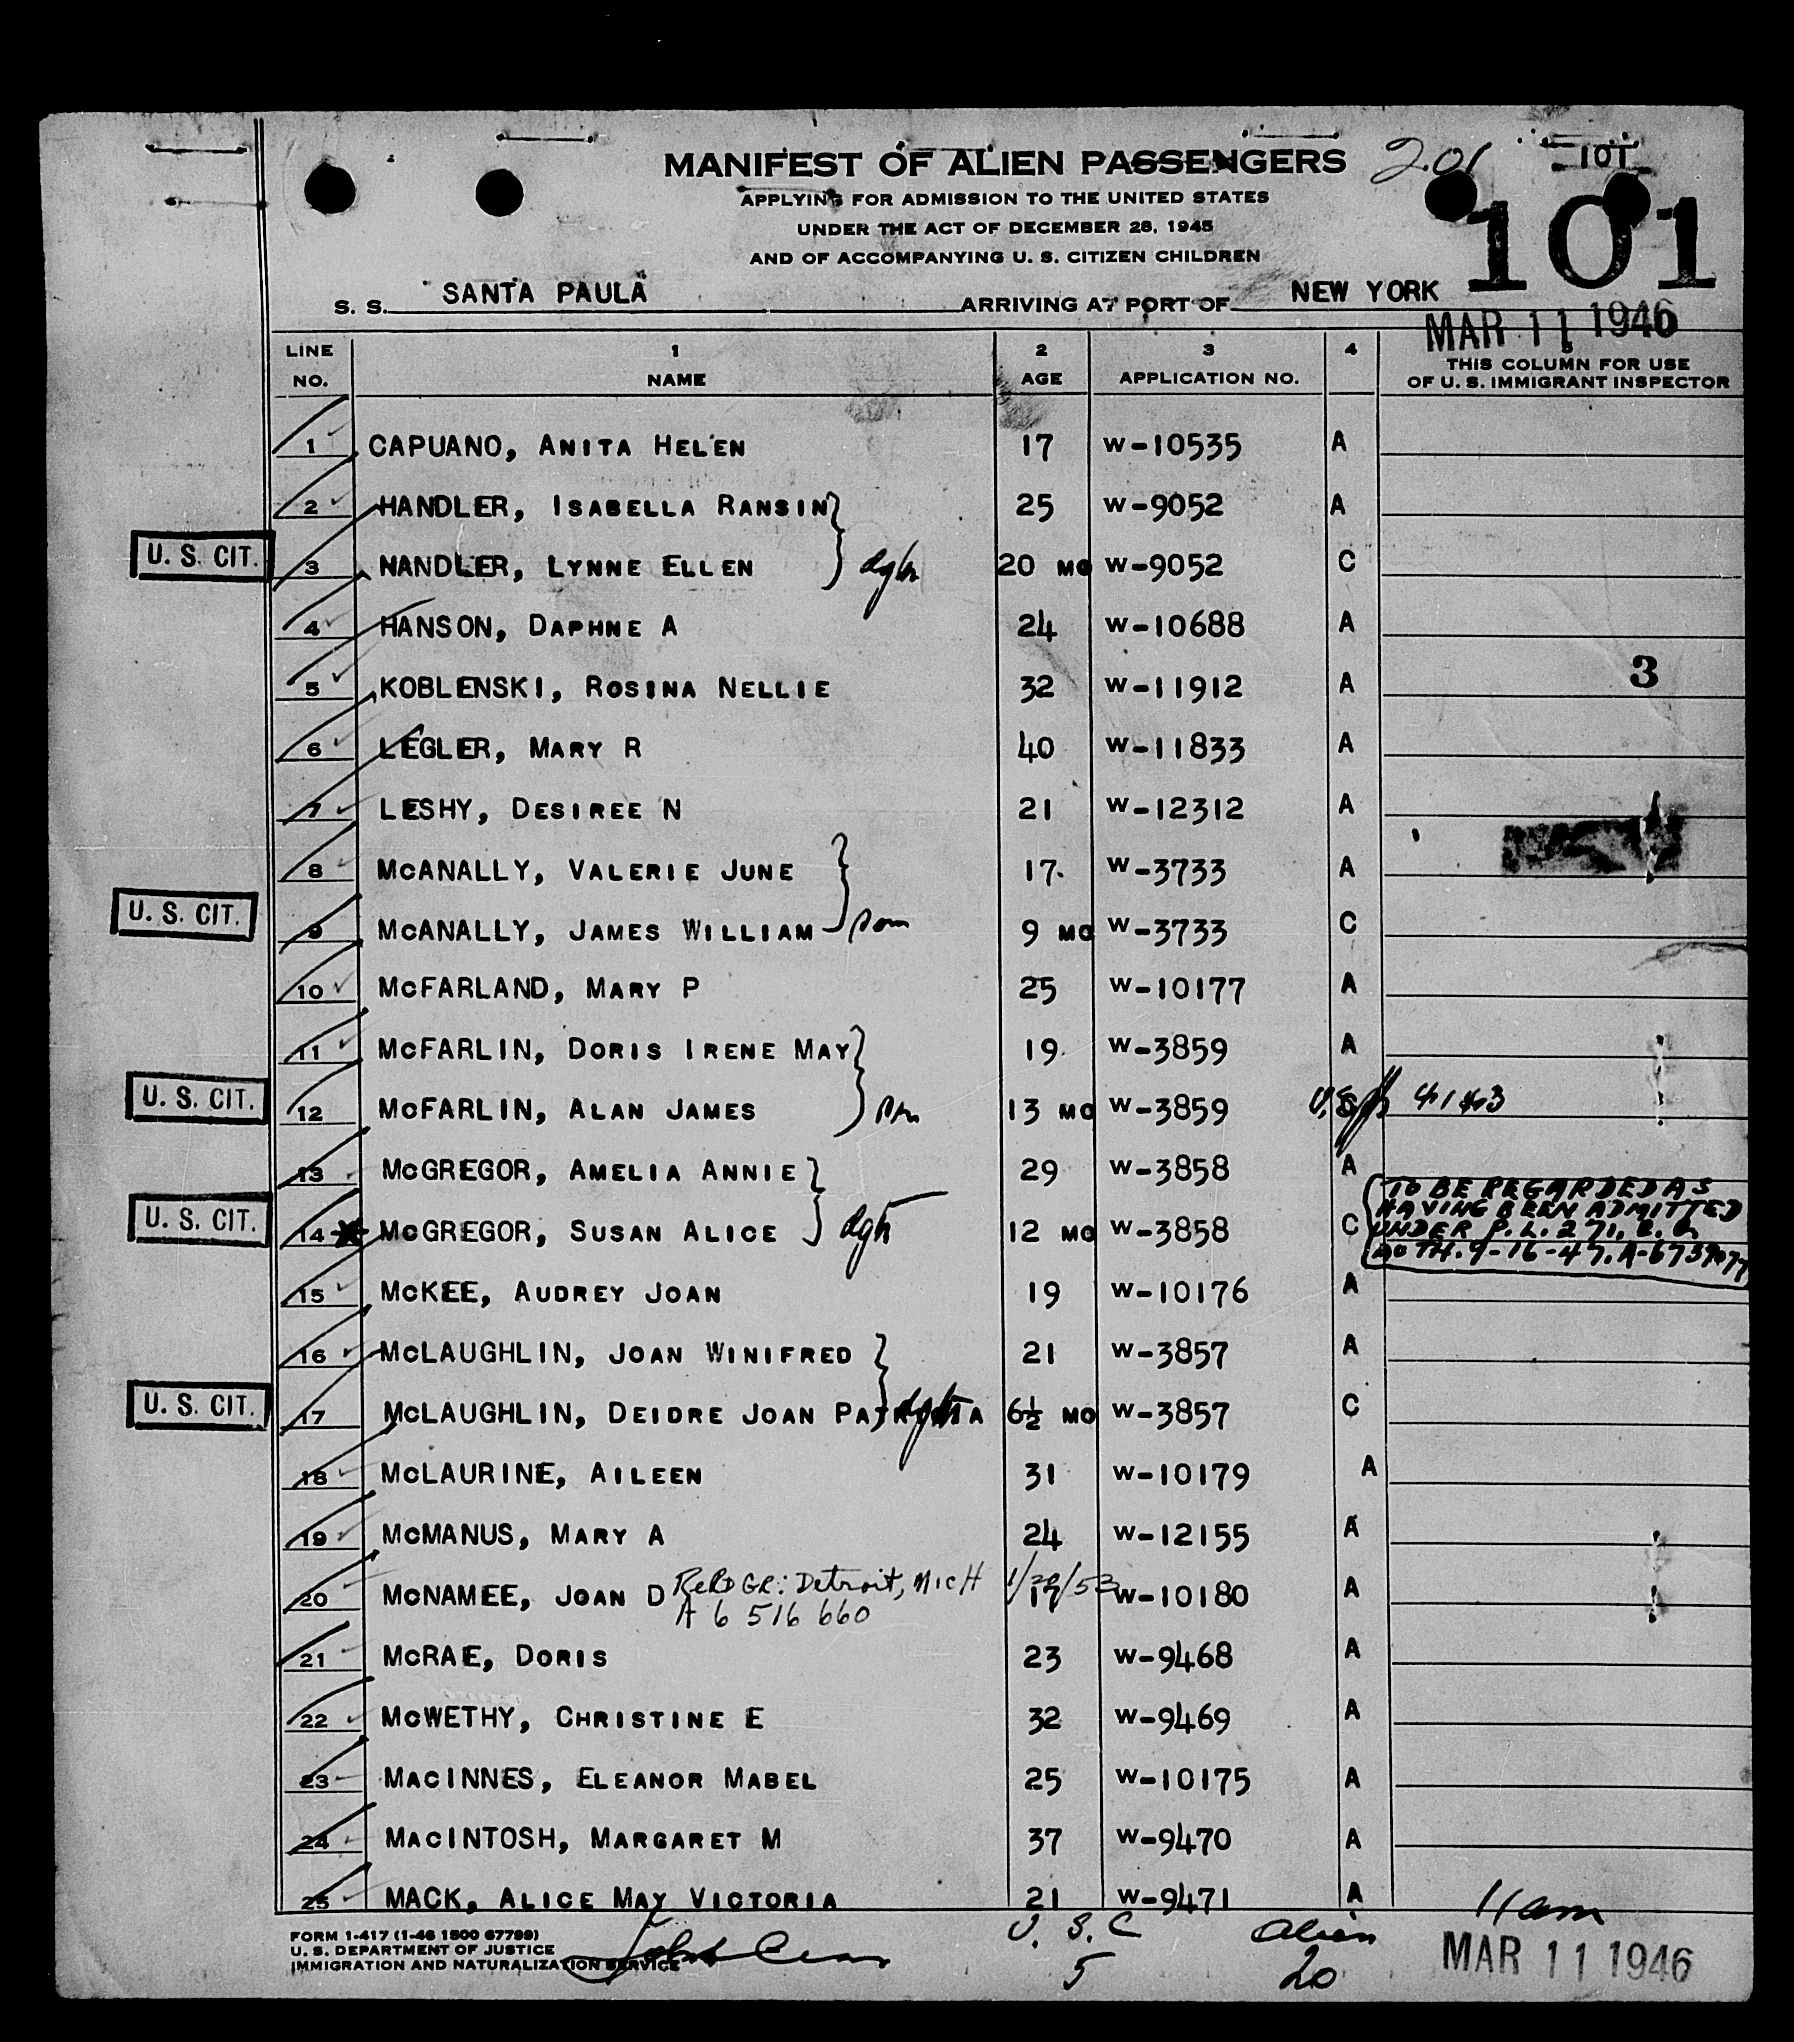 MANIFEST OF ALIEN PASSENGERS 201 101
APPLYING FOR ADMISSION TO THE UNITED STATES 101
UNDER THE ACT OF DECEMBER 28, 1945
AND OF ACCOMPANYING U. S. CITIZEN CHILDREN
S. S. SANTA PAULA ARRIVING AT PORT OF NEW YORK
MAR 11 1946
LINE NO. 1 NAME 2 AGE 3 APPLICATION NO. 4 THIS COLUMN FOR USE OF U. S. IMMIGRANT INSPECTOR
1 CAPUANO, ANITA HELEN 17 W-10535 A
2 HANDLER, ISABELLA RANSIN 25 W-9052 A
U. S. CIT. 3 NANDLER, LYNNE ELLEN dgtr 20 MO W-9052 C
4 HANSON, DAPHNE A 24 W-10688 A
5 KOBLENSKI, ROSINA NELLIE 32 W-11912 A 3
6 LEGLER, MARY R 40 W-11833 A
7 LESHY, DESIREE N 21 W-12312 A
8 MCANALLY, VALERIE JUNE 17 W-3733 A
U. S. CIT. 9 MCANALLY, JAMES WILLIAM son 9 MO W-3733 C
10 MCFARLAND, MARY P 25 W-10177 A
11 MCFARLIN, DORIS IRENE MAY 19 W-3859 A
U. S. CIT. 12 MCFARLIN, ALAN JAMES son 13 MO W-3859
13 MCGREGOR, AMELIA ANNIE 29 W-3858 A
U. S. CIT. 14 MCGREGOR, SUSAN ALICE dgtr 12 MO W-3858 C
TO BE REGARDED AS
HAVING BEEN ADMITTED
UNDER P. L. 271, C. O.
15 MCKEE, AUDREY JOAN 19 W-10176 A
16 MCLAUGHLIN, JOAN WINIFRED 21 W-3857 A
U. S. CIT. 17 MCLAUGHLIN, DEIDRE JOAN PATRICIA dgtr 6½ MO W-3857 C
18 MCLAURINE, AILEEN 31 W-10179 A
19 MCMANUS, MARY A 24 W-12155 A
20 MCNAMEE, JOAN D Detroit, MICH W-10180 A
A 6 516 660
21 MCRAE, DORIS 23 W-9468 A
22 MCWETHY, CHRISTINE E 32 W-9469 A
23 MACINNES, ELEANOR MABEL 25 W-10175 A
24 MACINTOSH, MARGARET M 37 W-9470 A
25 MACK, ALICE MAY VICTORIA 21 W-9471 A
11 am
FORM I-417 (1-46 1500 67799)
U. S. DEPARTMENT OF JUSTICE
IMMIGRATION AND NATURALIZATION SERVICE
U. S. C Alien
5 20
MAR 11 1946